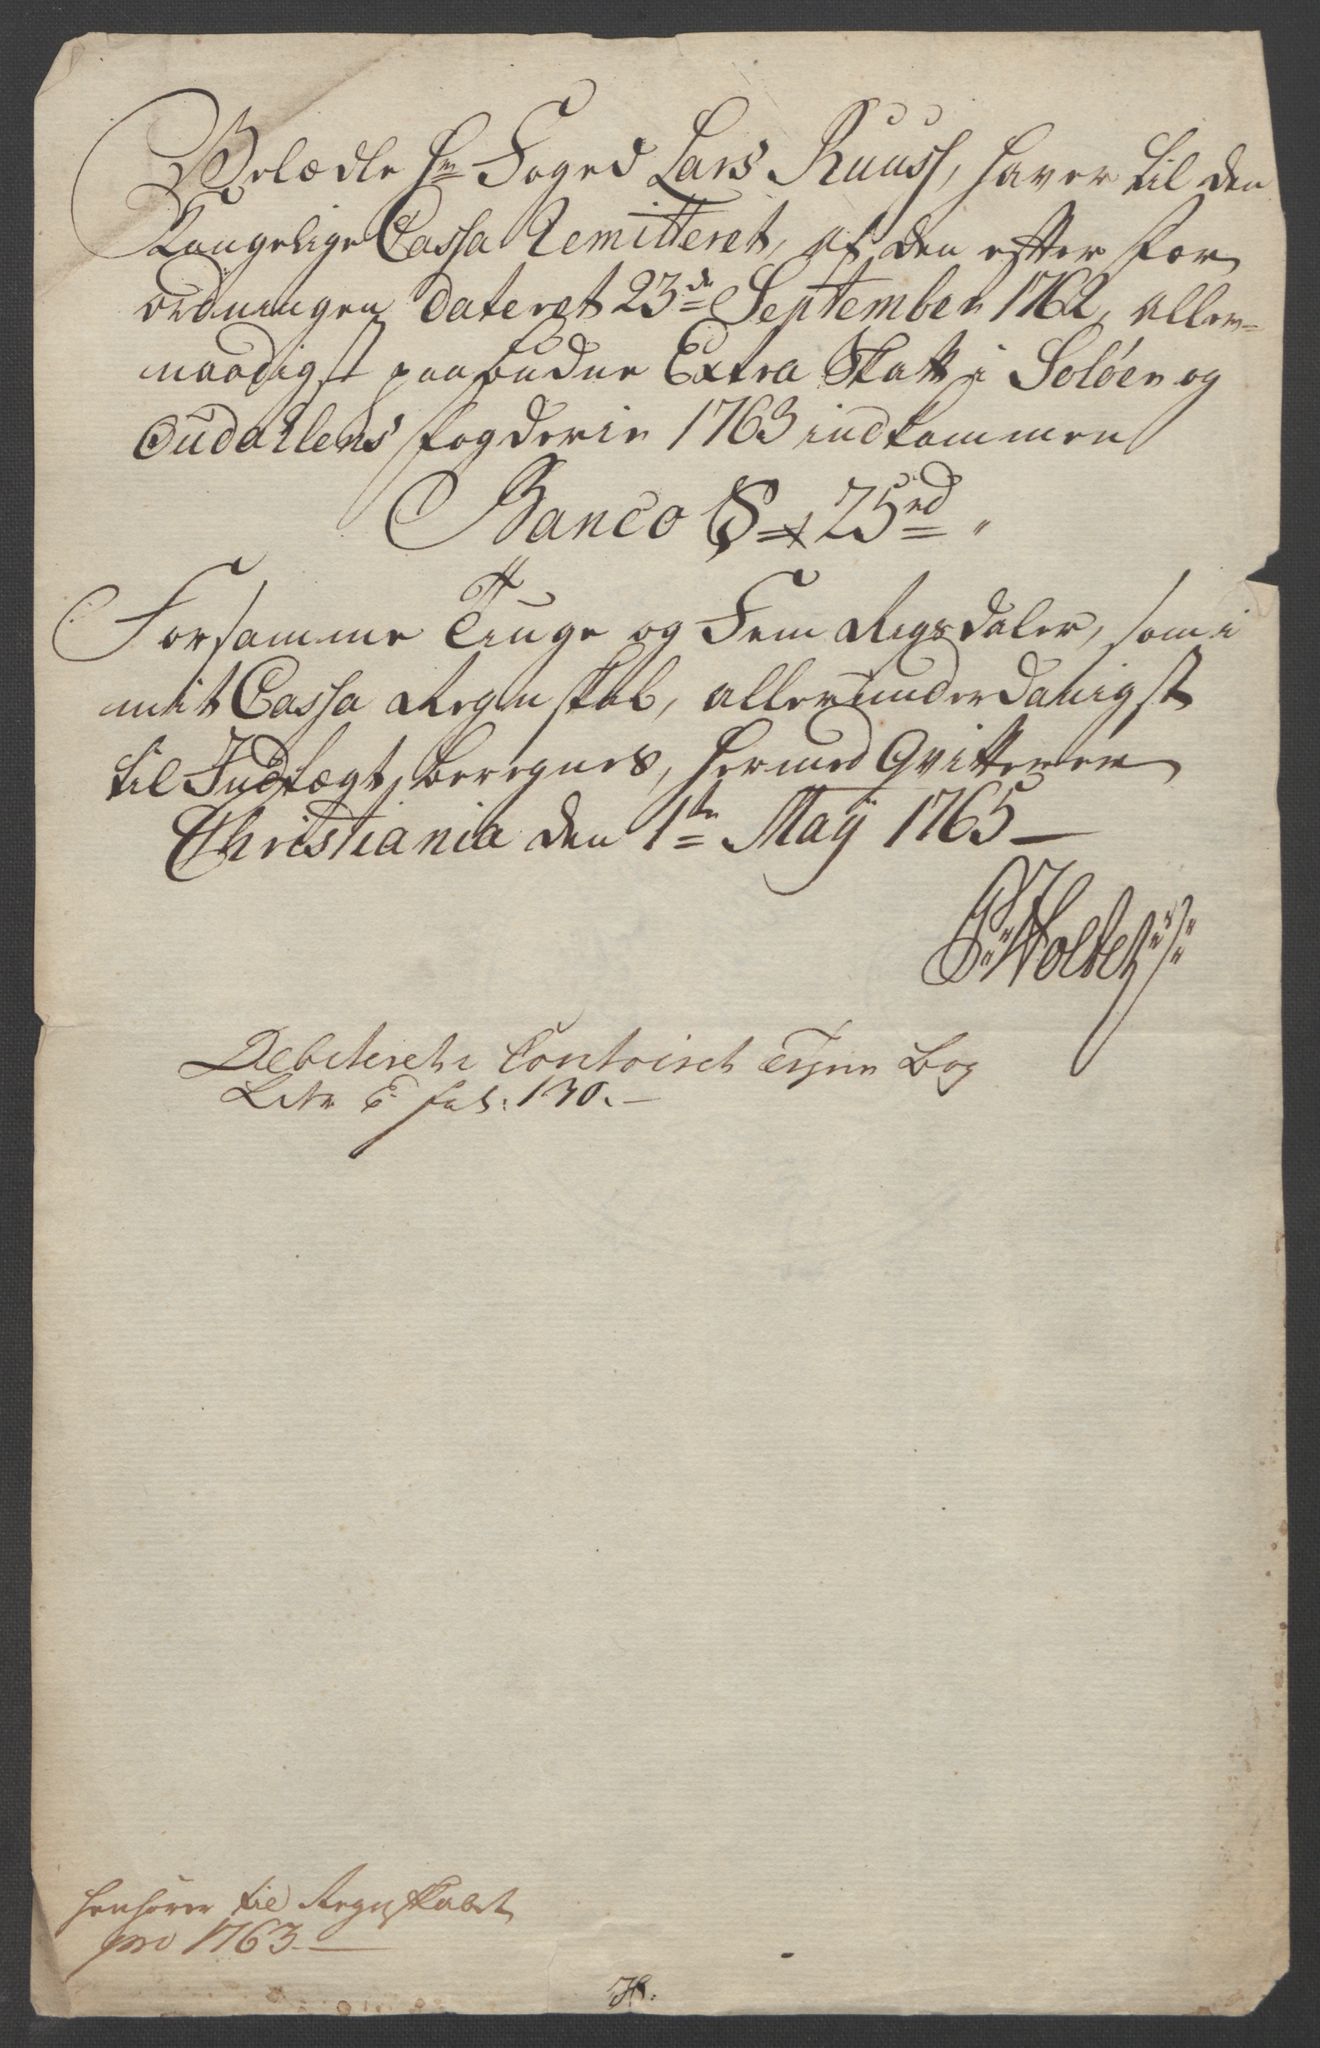 Velædle Hr Foged Lars Ruus, haver til den
Kongelige Cassa Remitteret, af den efter For
ordningen dateret 23de September 1762, aller=
naadigst paabudne Extra Skatt i Soløer og
Oudallens fogderie 1763 indkommen
Banco S 25rd "
Forsamme Tiuge og Fem Rigsdaler, som i
mit Cassa Regnskab, allerunderdanigst
til Indtægt beregnes, hermed Qvitterer
Christiania den 1te Maÿ 1765 —
Debiteret i Contoiret Bog
Litr E. fol: 130. —
henhører til Regnskabet
pro 1763 —